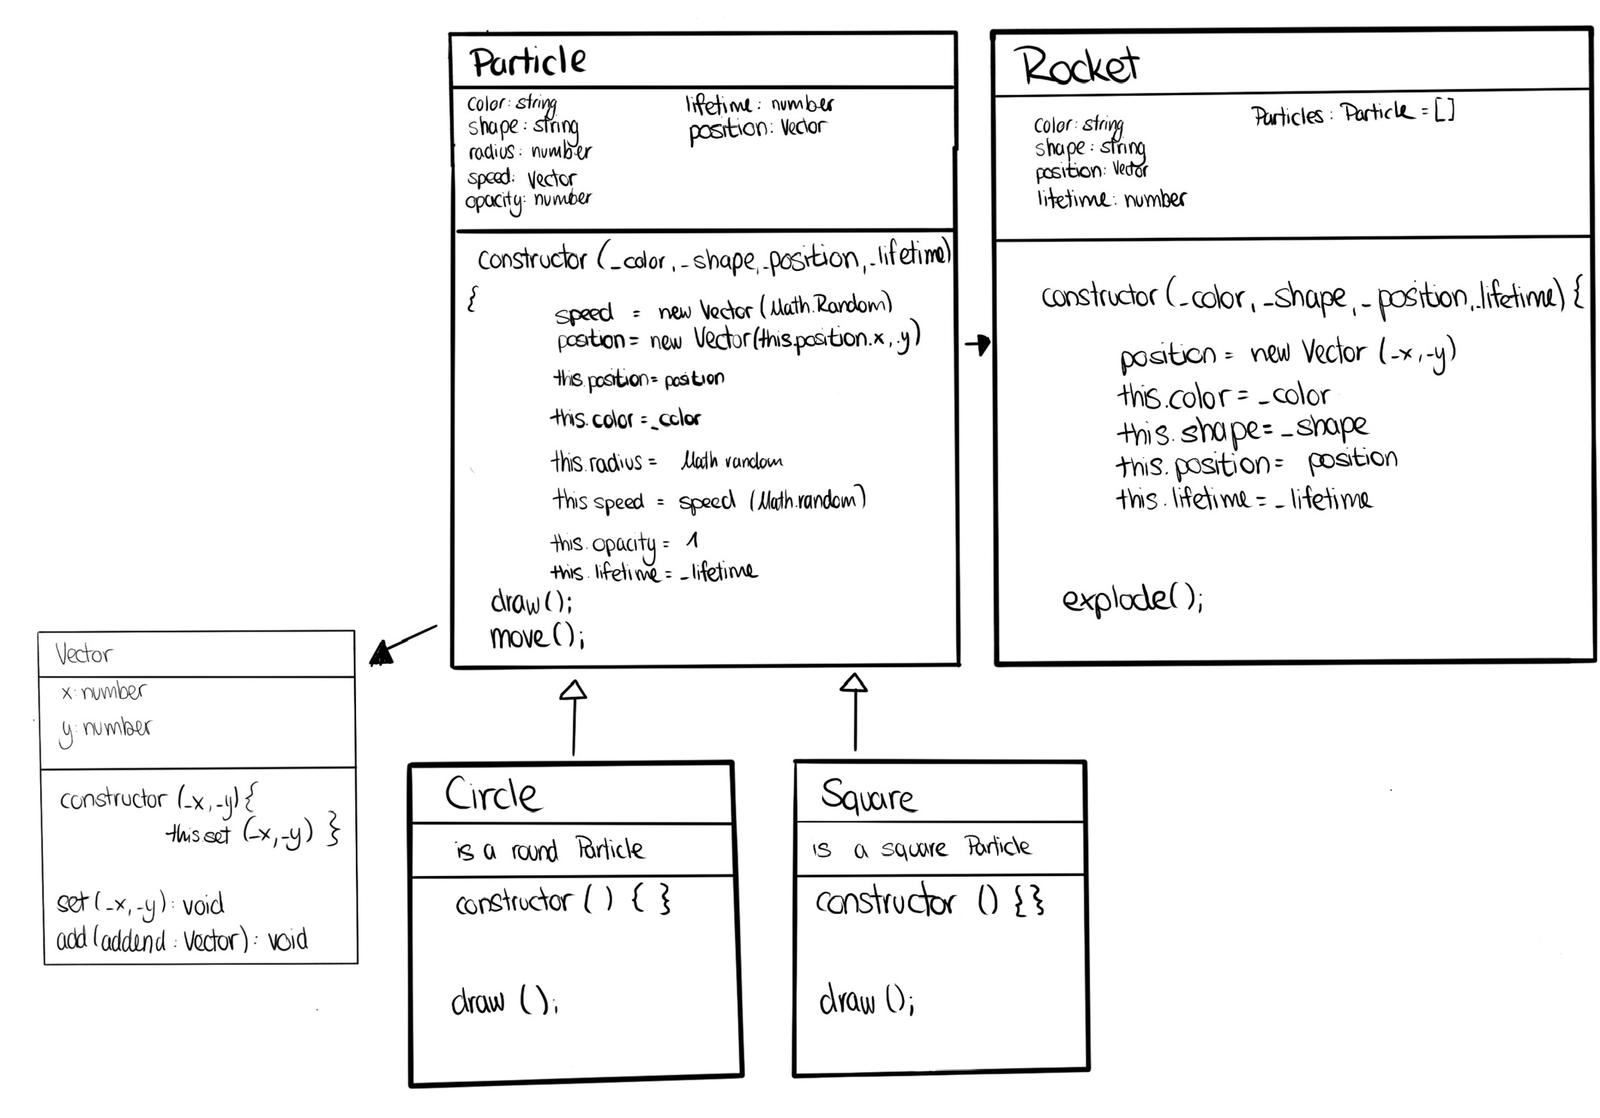 Particle
color: string
shape: string
radius: number
speed: Vector
opacity: number
lifetime: number
position: Vector
constructor (_color, _shape, _position, _lifetime)
{
speed = new Vector (Math.Random)
position = new Vector(this.position.x, .y)
this.position = position
this.color = _color
this.radius = Math random
this speed = speed (Math.random)
this.opacity = 1
this.lifetime = _lifetime
draw();
move();
Rocket
color: string
shape: string
position: Vector
lifetime: number
Particles: Particle = []
constructor (_color, _shape, _position, _lifetime) {
position = new Vector (_x, _y)
this.color = _color
this.shape = _shape
this.position = position
this.lifetime = _lifetime
explode();
Vector
x: number
y: number
constructor (_x, _y) {
this set (_x, _y) }
set (_x, _y): void
add (addend: Vector): void
Circle
is a round Particle
constructor () { }
draw ();
Square
is a square Particle
constructor () {}
draw ();